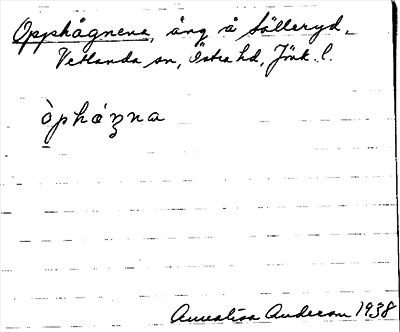 Opphågnena, äng å Sälleryd,
Vetlanda sn, Östra hd, Jönk. l.
òphágna
Annalisa Anderson 1938